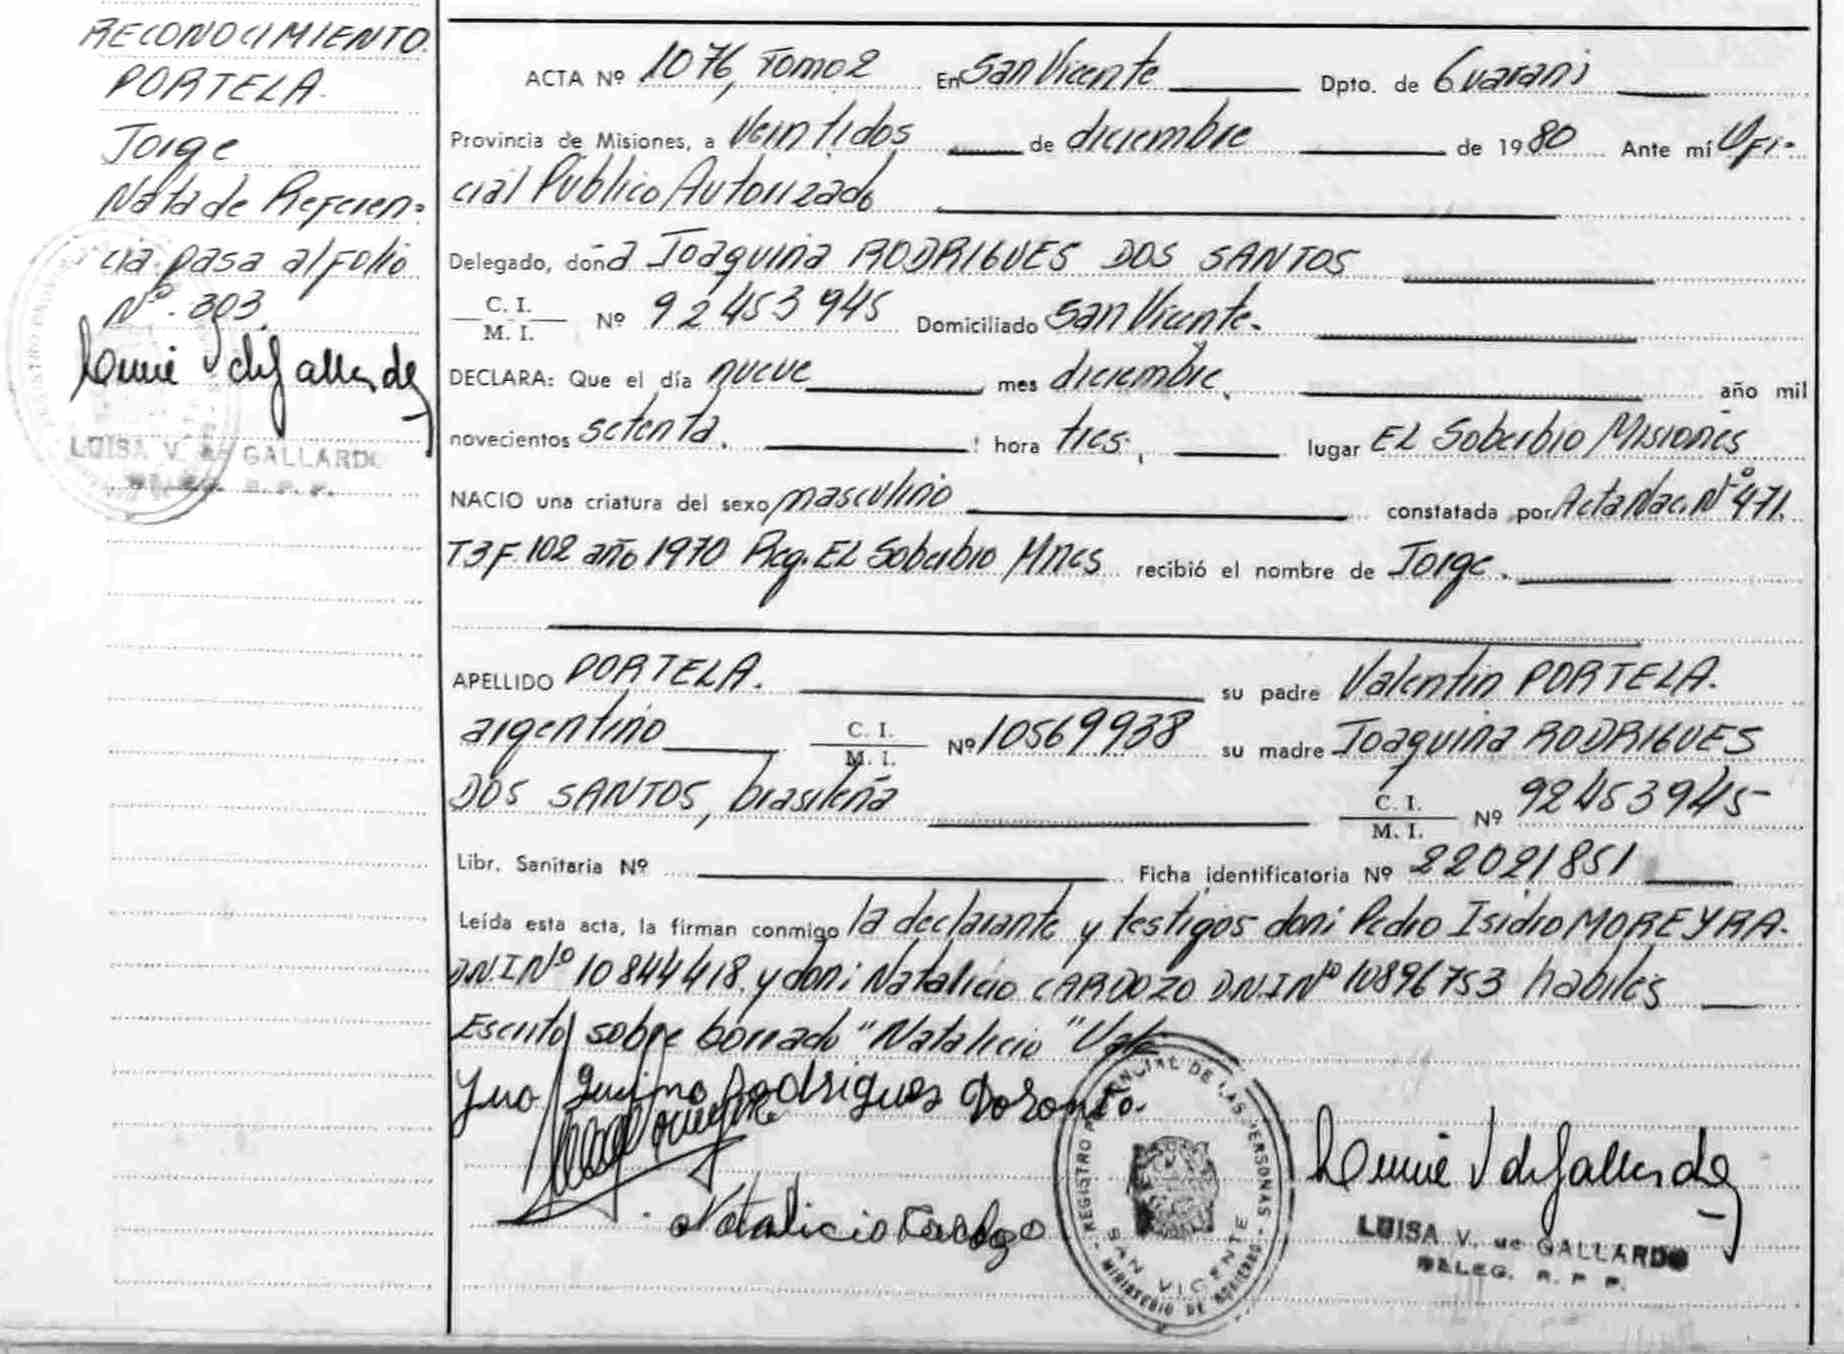 RECONOCIMIENTO.
PORTELA.
Jorge
Nota de Referen-
cia pasa al Folio
Nº. 303.
LUISA V. de GALLARDO
DELEG. R. P. P.
ACTA Nº 1076, Tomo 2 En San Vicente Dpto. de Guarani
Provincia de Misiones, a Veintidos de diciembre de 1980 Ante mí Ofi-
cial Público Autorizado
Delegado, doña Joaquina RODRIGUES DOS SANTOS
C. I.
M. I. Nº 92453945 Domiciliado San Vicente.
DECLARA: Que el día nueve, mes diciembre, año mil
novecientos setenta, hora tres, lugar EL Soberbio Misiones
NACIO una criatura del sexo masculino constatada por Acta Nac. Nº 471.
T3 F. 102 año 1970 Reg. EL Soberbio Mnes recibió el nombre de Jorge.
APELLIDO PORTELA. su padre Valentin PORTELA.
argentino C. I.
M. I. Nº 10569938 su madre Joaquina RODRIGUES
DOS SANTOS, brasileña C. I.
M. I. Nº 92453945
Libr. Sanitaria Nº Ficha identificatoria Nº 22021851
Leída esta acta, la firman conmigo la declarante y testigos don: Pedro Isidro MOREYRA.
D.N.I Nº 10844418, y don: Natalicio CARDOZO D.N.I Nº 10896753 habiles
Escrito sobre borrado "Natalicio" Vale
Rodrigues
Natalicio Cardozo
REGISTRO PROVINCIAL DE LAS PERSONAS - MINISTERIO DE GOBIERNO -
SAN VICENTE
LUISA V. de GALLARDO
DELEG. R. P. P.